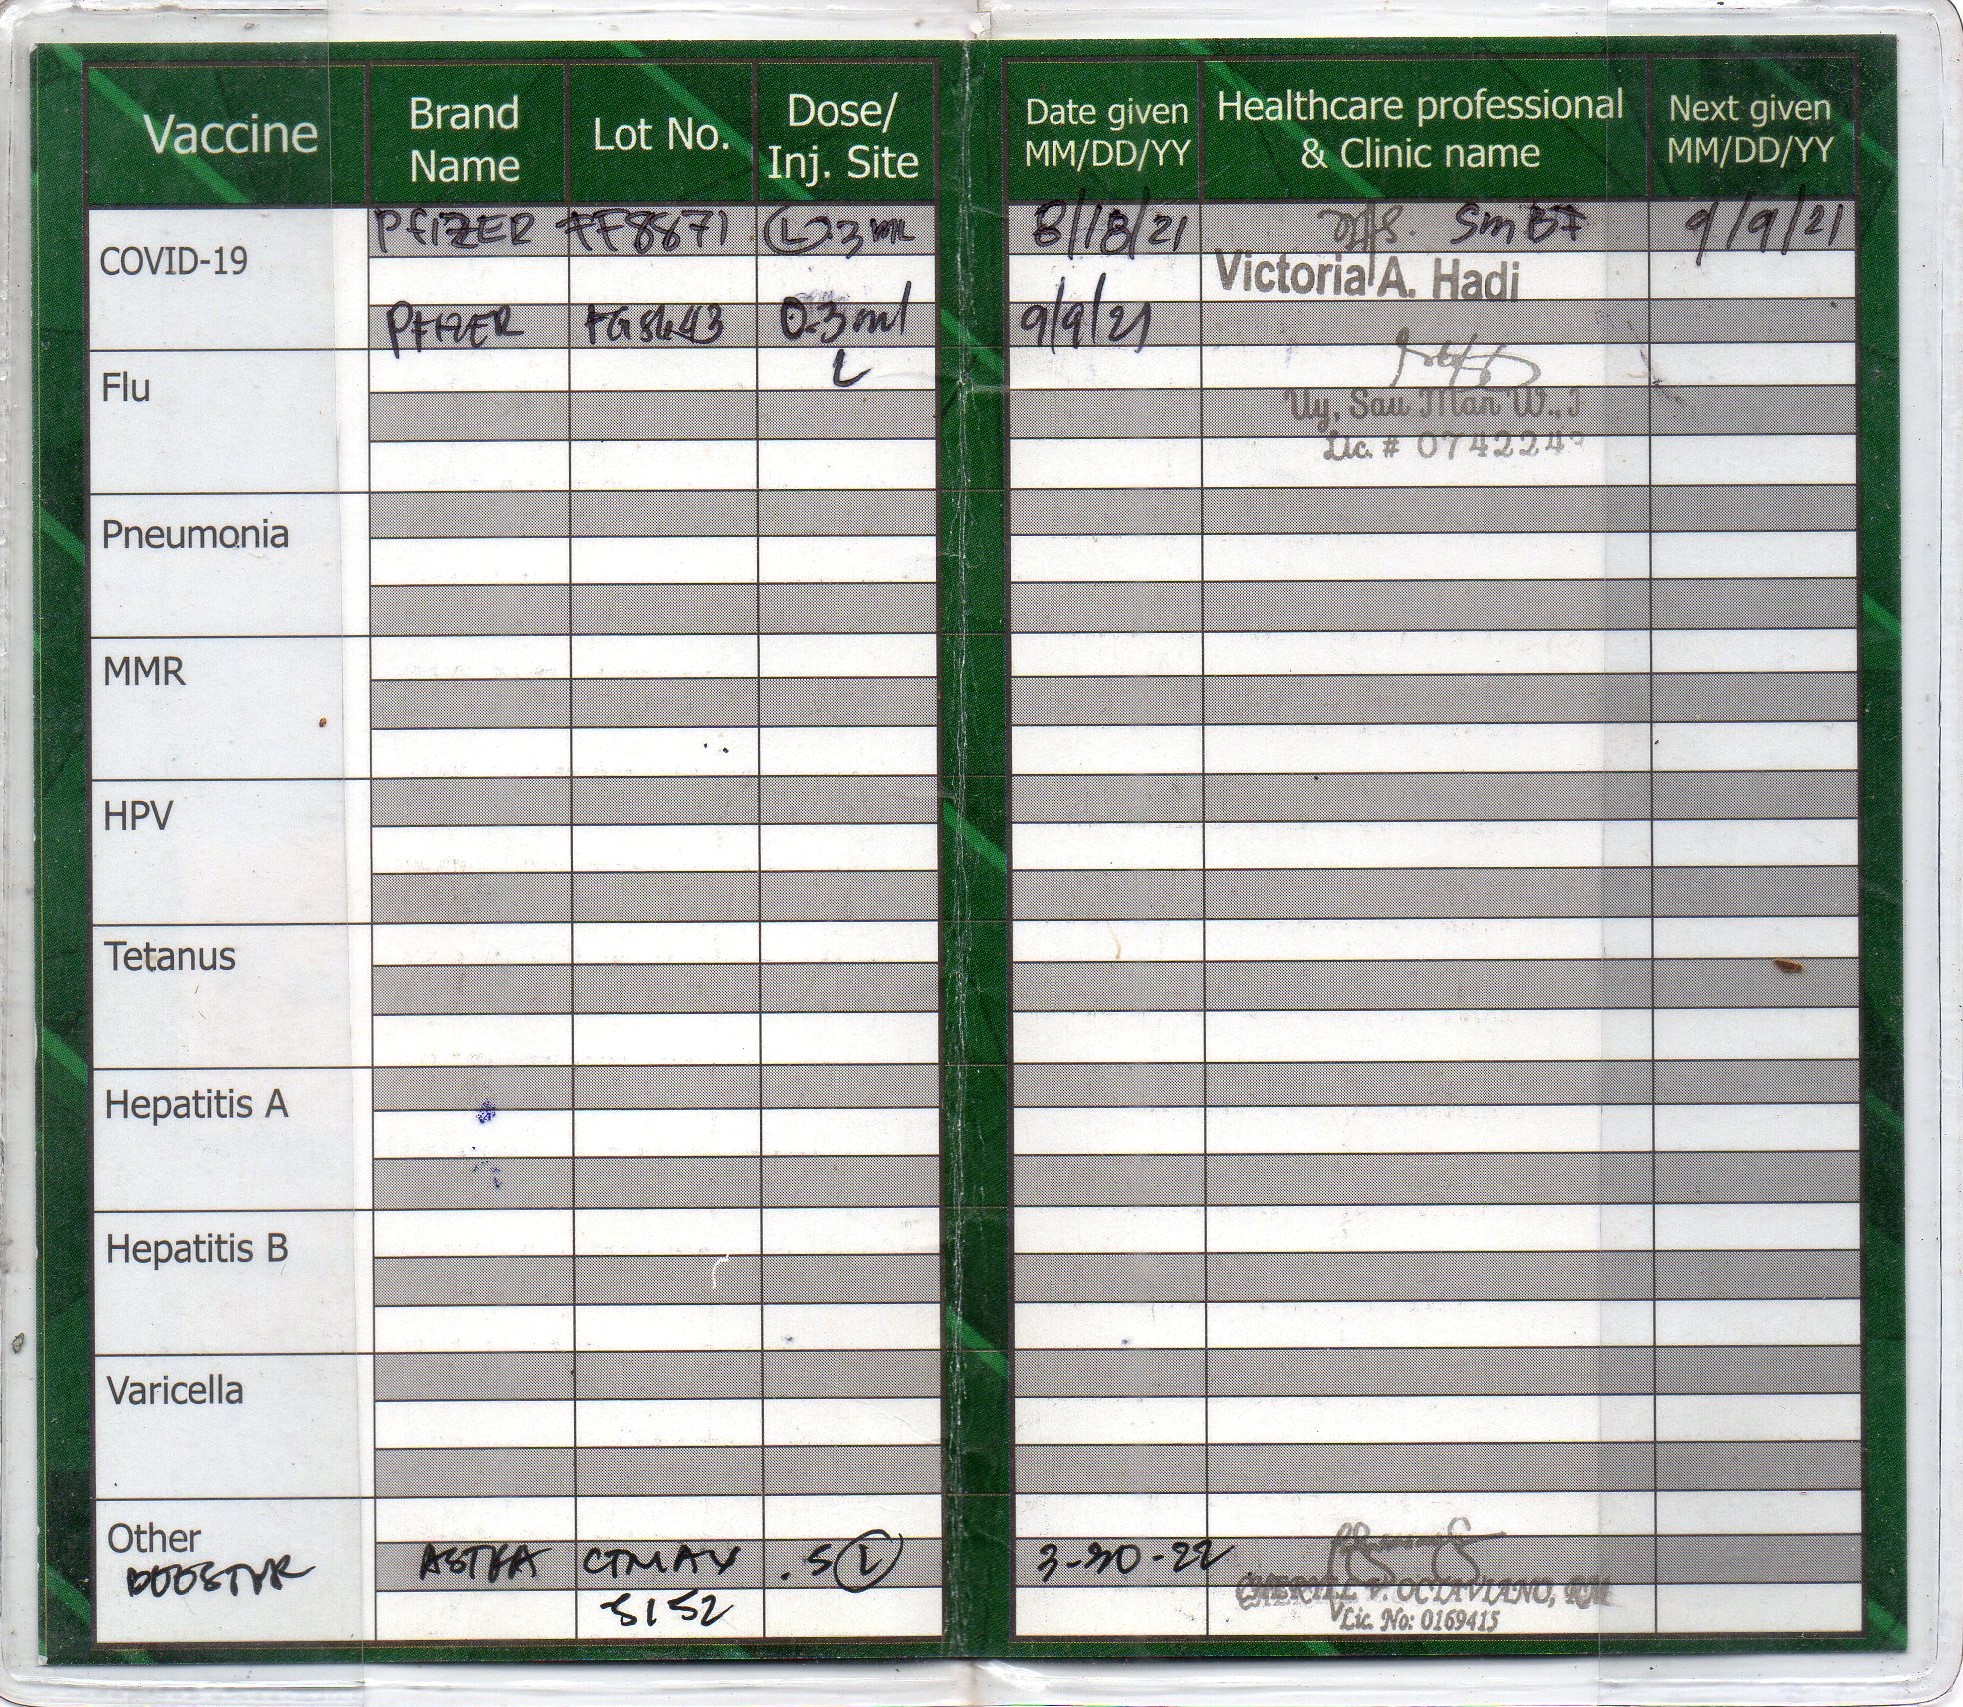 Vaccine Brand Name Lot No. Dose/ Inj. Site Date given MM/DD/YY Healthcare professional & Clinic name Next given MM/DD/YY
COVID-19 PFIZER FF8871 (L) .3 ml 8/18/21 Sm BF 9/9/21
Victoria A. Hadi
PFIZER 0.3 ml 9/9/21
L
Flu
Uy, Sau Man W.
Lic. # 074224
Pneumonia
MMR
HPV
Tetanus
Hepatitis A
Hepatitis B
Varicella
Other
BOOSTER ASTRA CTMAX .5 (L) 3-30-22
5152 CHERILL V. OCTAVIANO, RM
Lic. No: 0169415